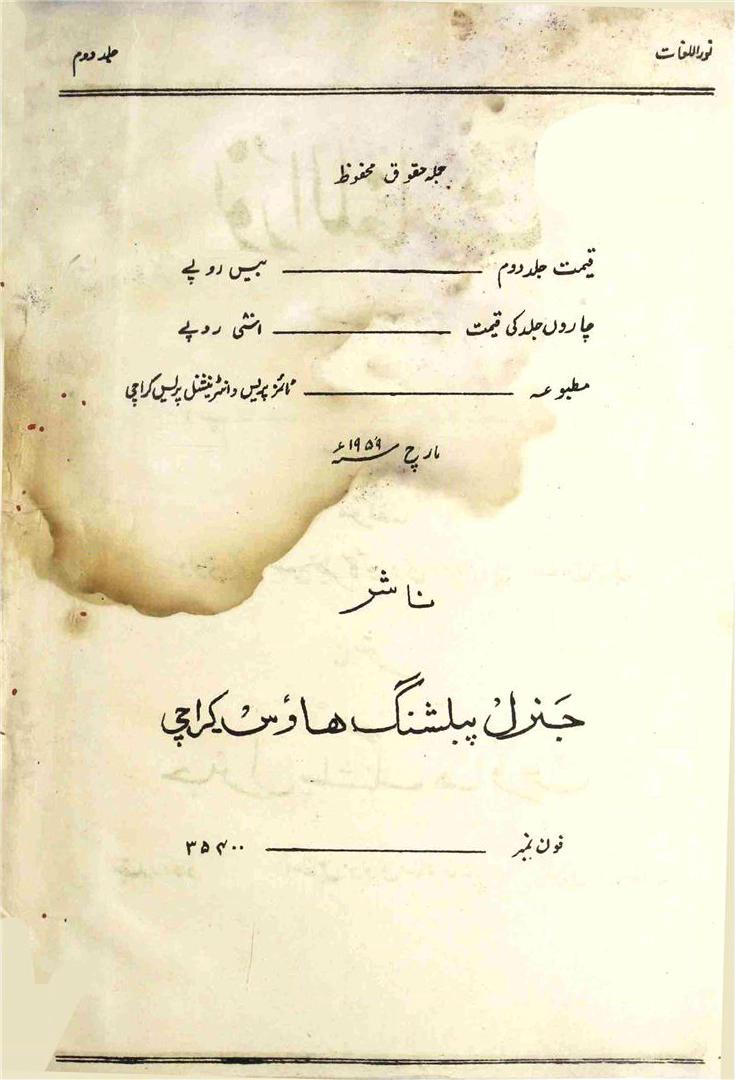 نوراللغات جلد دوم
جملہ حقوق محفوظ
قیمت جلد دوم ——— بیس روپے
چاروں جلد کی قیمت ——— اسّی روپے
مطبوعہ ——— ٹائمز پریس و انٹرنیشنل پریس کراچی
مارچ ۱۹۵۹ء
ناشر
جنرل پبلشنگ ہاؤس کراچی
فون نمبر ——— ۳۵۴۰۰